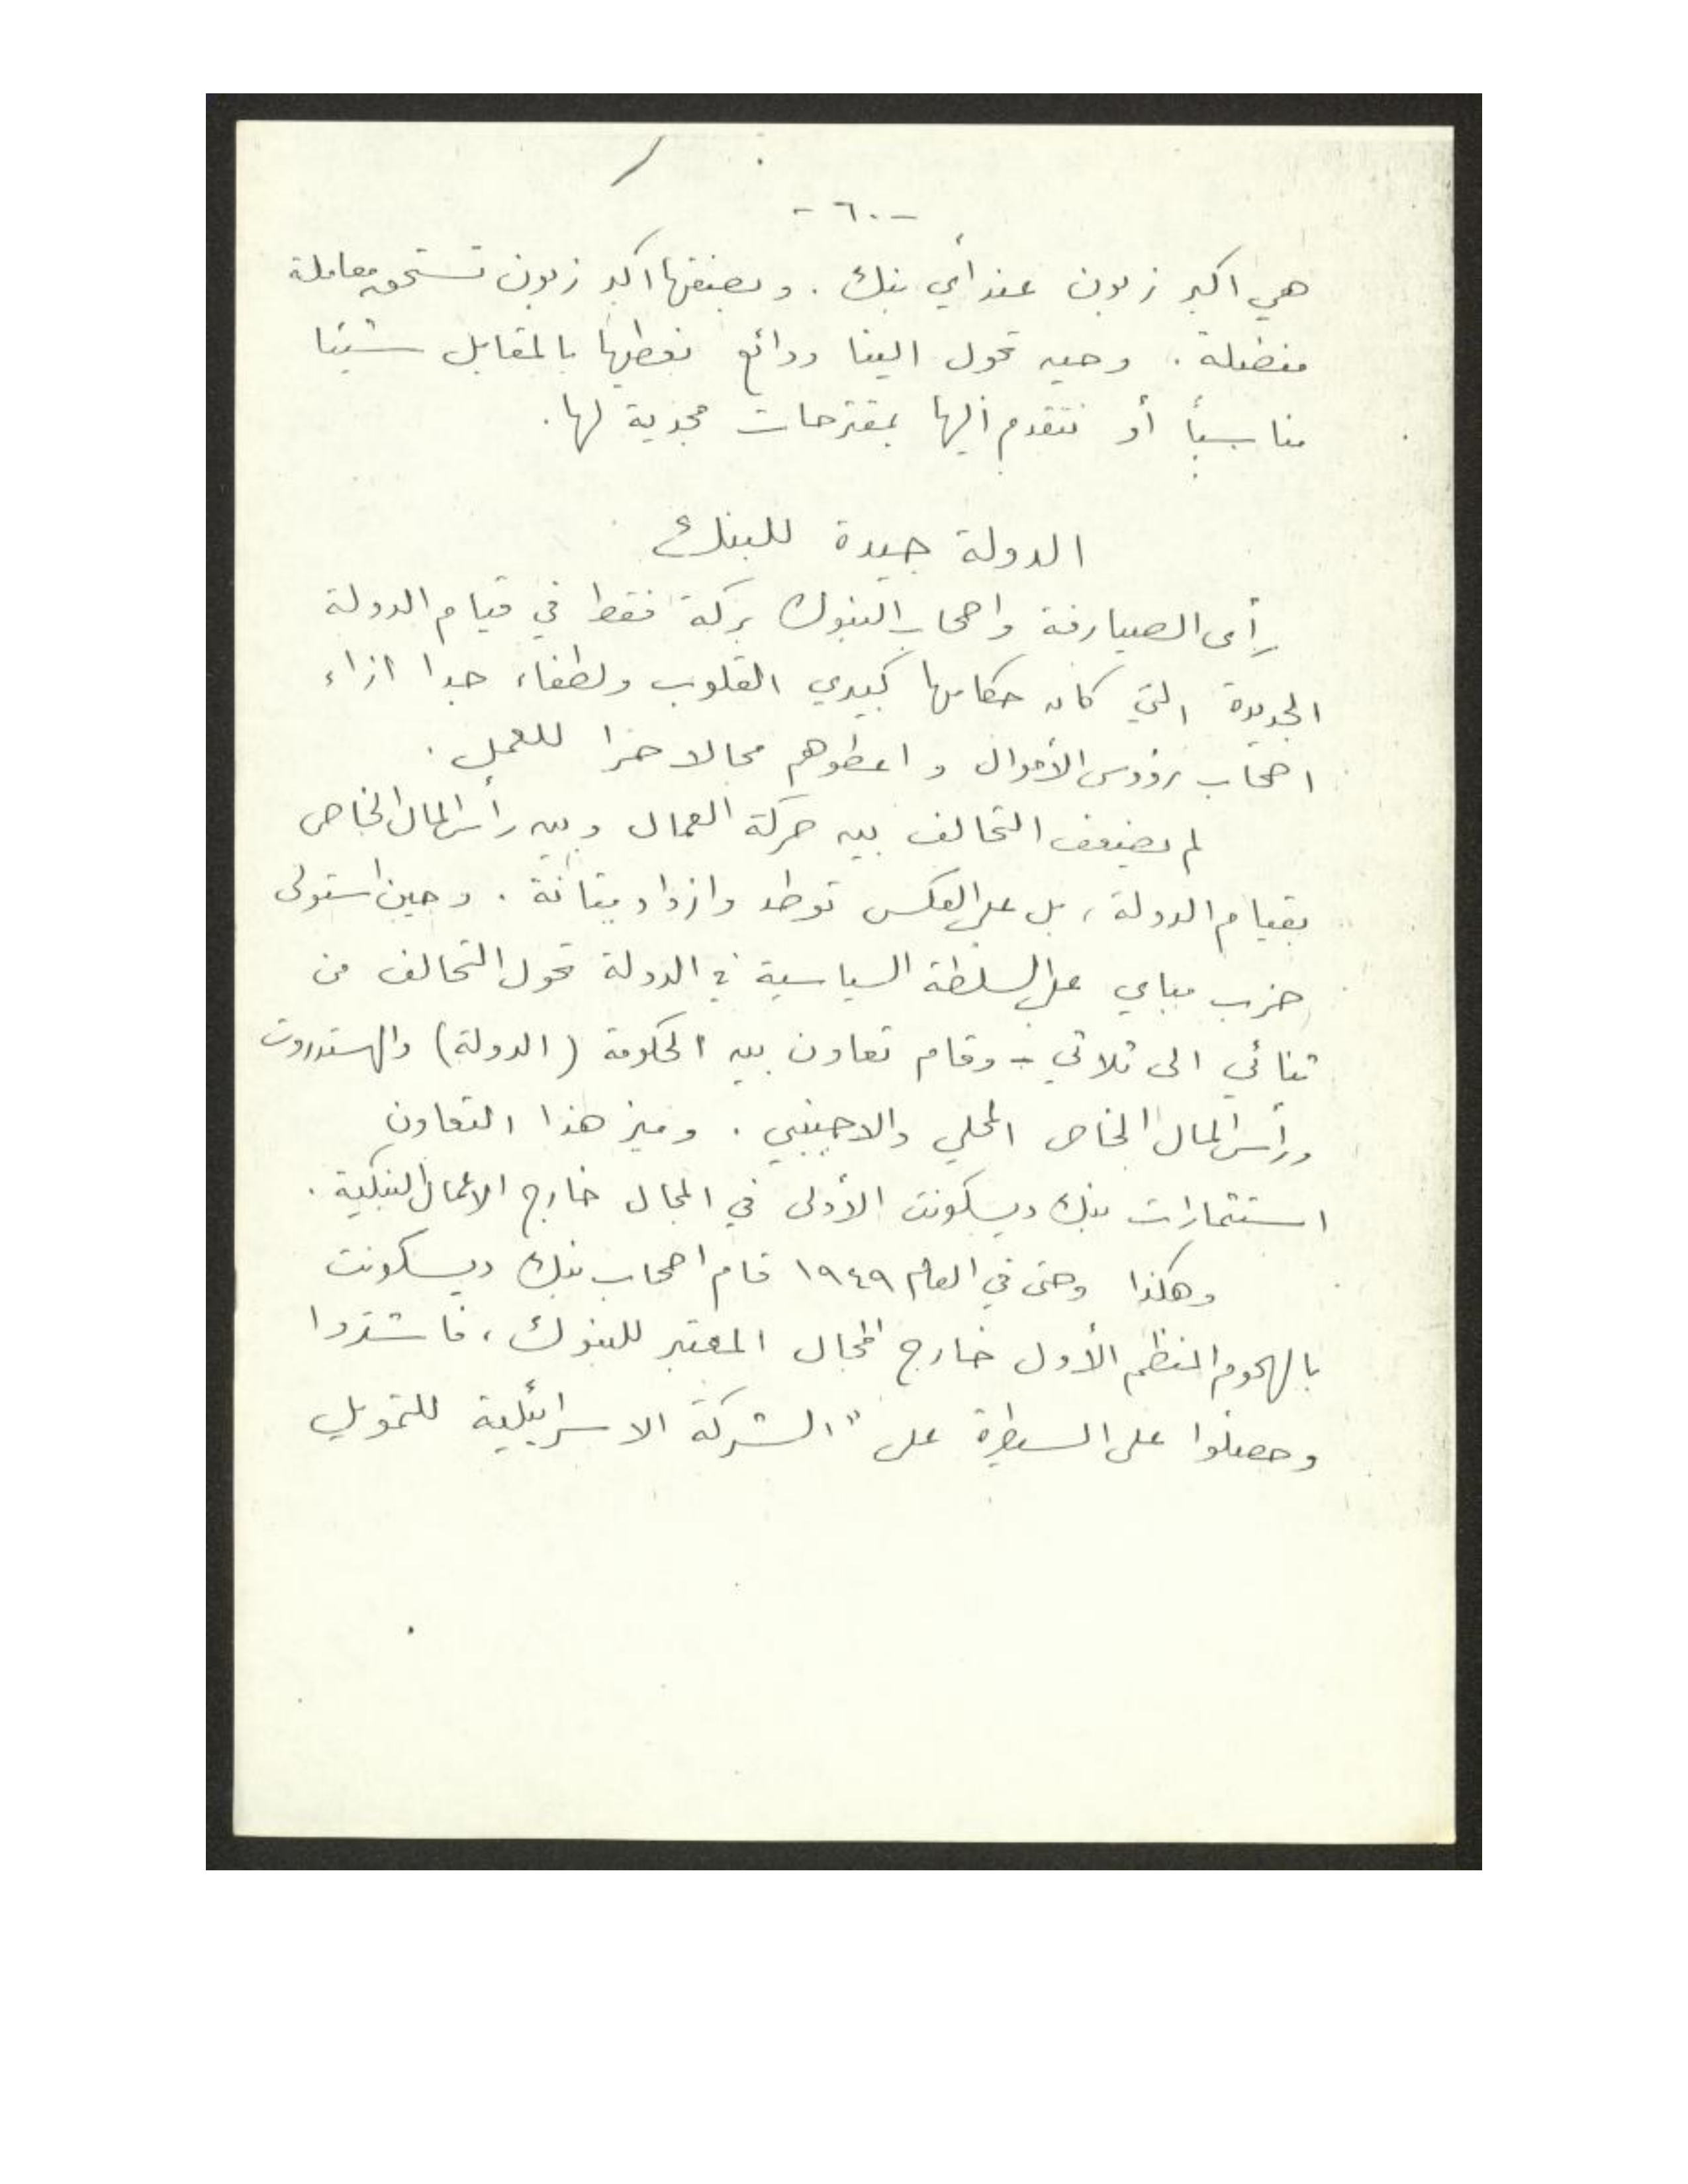 - ٦٠ -
هي اكبر زبون عند أي بنك . وبصفتها اكبر زبون تستحق معاملة
مفضلة . وحين تحول الينا ودائع نعطيها بالمقابل شيئا
مناسباً أو نتقدم اليها بمقترحات مجدية لها .
الدولة جيدة للبنك
رأى الصيارفة واصحاب البنوك بركة فقط في قيام الدولة
الجديدة التي كان حكامها كبيري القلوب ولطفاء جدا ازاء
اصحاب رؤوس الأموال و اعطوهم مجالا حرا للعمل .
لم يضعف التحالف بين حركة العمال وبين رأس المال الخاص
بقيام الدولة ، بل على العكس توطد وازداد متانة . وحين استولى
حزب مباي على السلطة السياسية في الدولة تحول التحالف من
ثنائي الى ثلاثي - وقام تعاون بين الحكومة ( الدولة ) والهستدروت
ورأس المال الخاص المحلي والاجنبي . وميز هذا التعاون
استثمارات بنك ديسكونت الأولى في المجال خارج الاعمال البنكية .
وهكذا وحتى في العام ١٩٤٩ قام اصحاب بنك ديسكونت
بالهجوم المنظم الأول خارج المجال المعتبر للبنوك ، فاشتروا
وحصلوا على السيطرة على " الشركة الاسرائيلية للتمويل